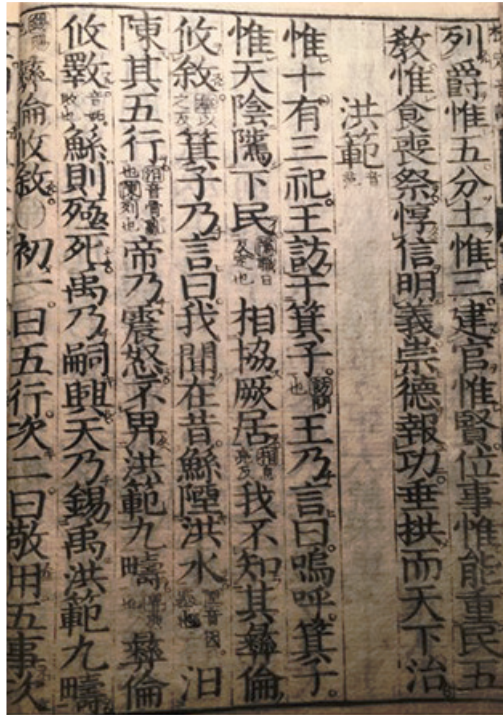 列爵惟五分土惟三建官惟賢位事惟能重民五
教惟食喪祭惇信明義崇德報功垂拱而天下治
洪範
惟十有三祀王訪于箕子訪問也王乃言曰嗚呼箕子
惟天陰隲下民隲職日反定也相協厥居我不知其彝倫
攸敘箕子乃言曰我聞在昔鯀陻洪水汨
陳其五行汨音骨亂也陳列也帝乃震怒不畀洪範九疇彝倫
攸斁音妬敗也鯀則殛死禹乃嗣興天乃錫禹洪範九疇
彝倫攸敘○初一曰五行次二曰敬用五事次